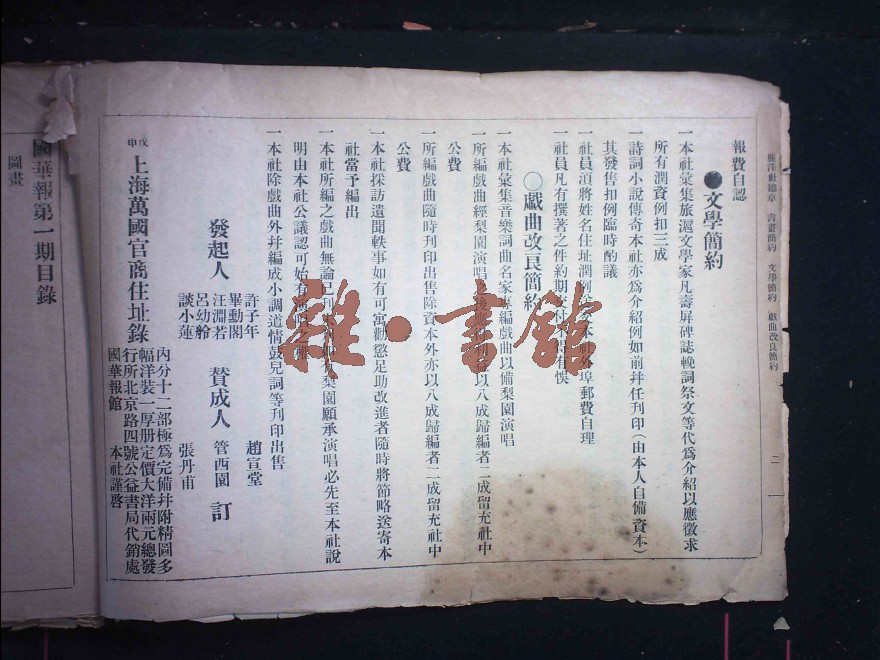 報費自認
●文學簡約
一本社彙集旅滬文學家凡壽屏碑誌輓詞祭文等代爲介紹以應徵求
所有潤資例扣三成
一詩詞小說傳奇本社亦爲介紹例如前幷任刊印(由本人自備資本)
其發售扣例臨時酌議
一社員須將姓名住址潤例 本社外埠郵費自理
一社員凡有撰著之件約期交付 有悞
○戲曲改良簡約
一本社彙集音樂詞曲名家專編戲曲以備梨園演唱
一所編戲曲經梨園演唱之後應得利益以八成歸編者二成留充社中
公費
一所編戲曲隨時刊印出售除資本外亦以八成歸編者二成留充社中
公費
一本社採訪遺聞軼事如有可寓勸懲足助改進者隨時將節略送寄本
社當予編出
一本社所編之戲曲無論已刊 梨園願承演唱必先至本社說
明由本公議認可始有演唱之權
一本社除戲曲外幷編成小調道情鼓兒詞等刊印出售
發起人
許子年
畢動閣
汪淵若
呂幼舲
談小蓮
贊成人
趙宣堂
管西園
張丹甫
訂
戊申上海萬國官商住址錄
內分十二部極爲完備幷附精圖多
幅洋裝一厚册定價大洋兩元總發
行所北京路四號公益書局代銷處
國華報館 本社謹啓
書畫簡約 文學簡約 戲曲改良簡約
二
國華報第一期目錄
圖畫
雜·書館